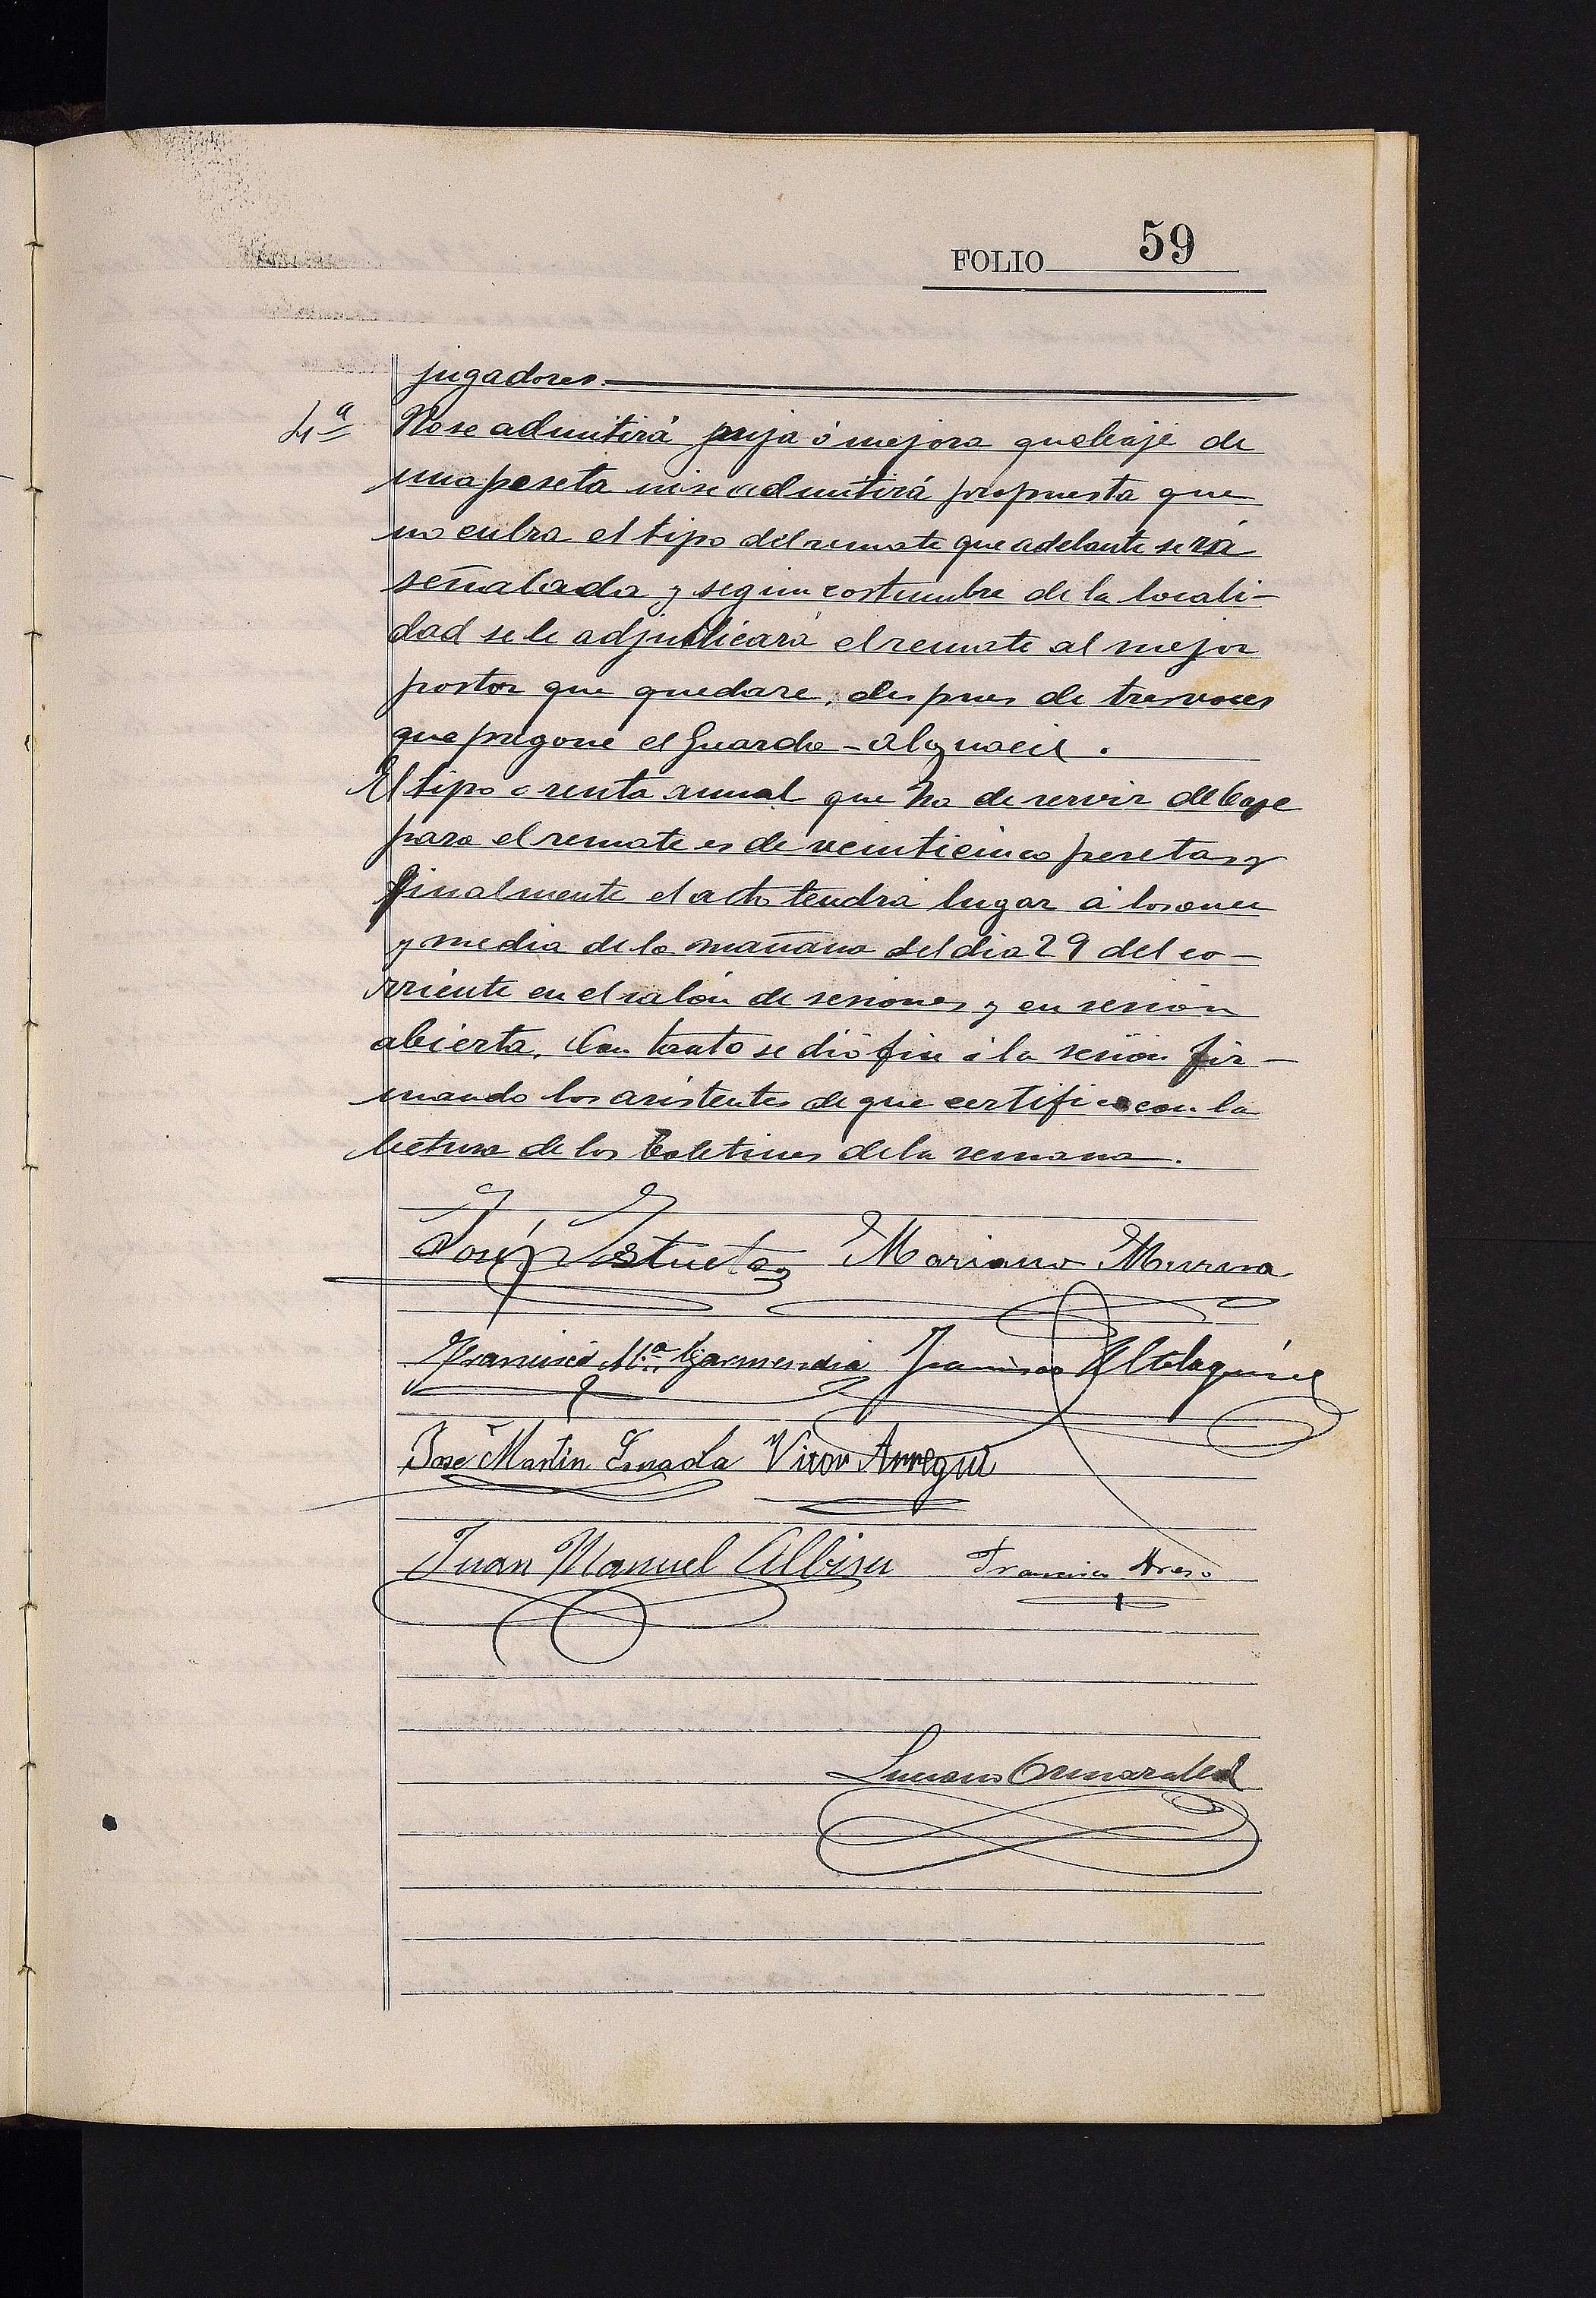 FOLIO 59
jugadores.
4ª No se admitirá puja ó mejora que baje de
una peseta ni se admitirá propuesta que
no cubra el tipo del remate que adelante será
señalada y segun costumbre de la locali-
dad se le adjudicará el remate al mejor
postor que quedare, despues de tres voces
que pregone el Guarda-alguacil.
El tipo o renta anual que ha de servir de base
para el remate es de veinticinco pesetas y
finalmente el acto tendrá lugar á las once
y media de la mañana del dia 29 del co-
rriente en el salón de sesiones y en sesión
abierta. Con tanto se dió fin á la sesión fir-
mando los asistentes de que certifico con la
lectura de los Boletines de la semana.
José Mariano Murua
Francisco M.ª Garmendia Francisco
José Martin Arregui
Juan Manuel Albisu Francisco
Luciano